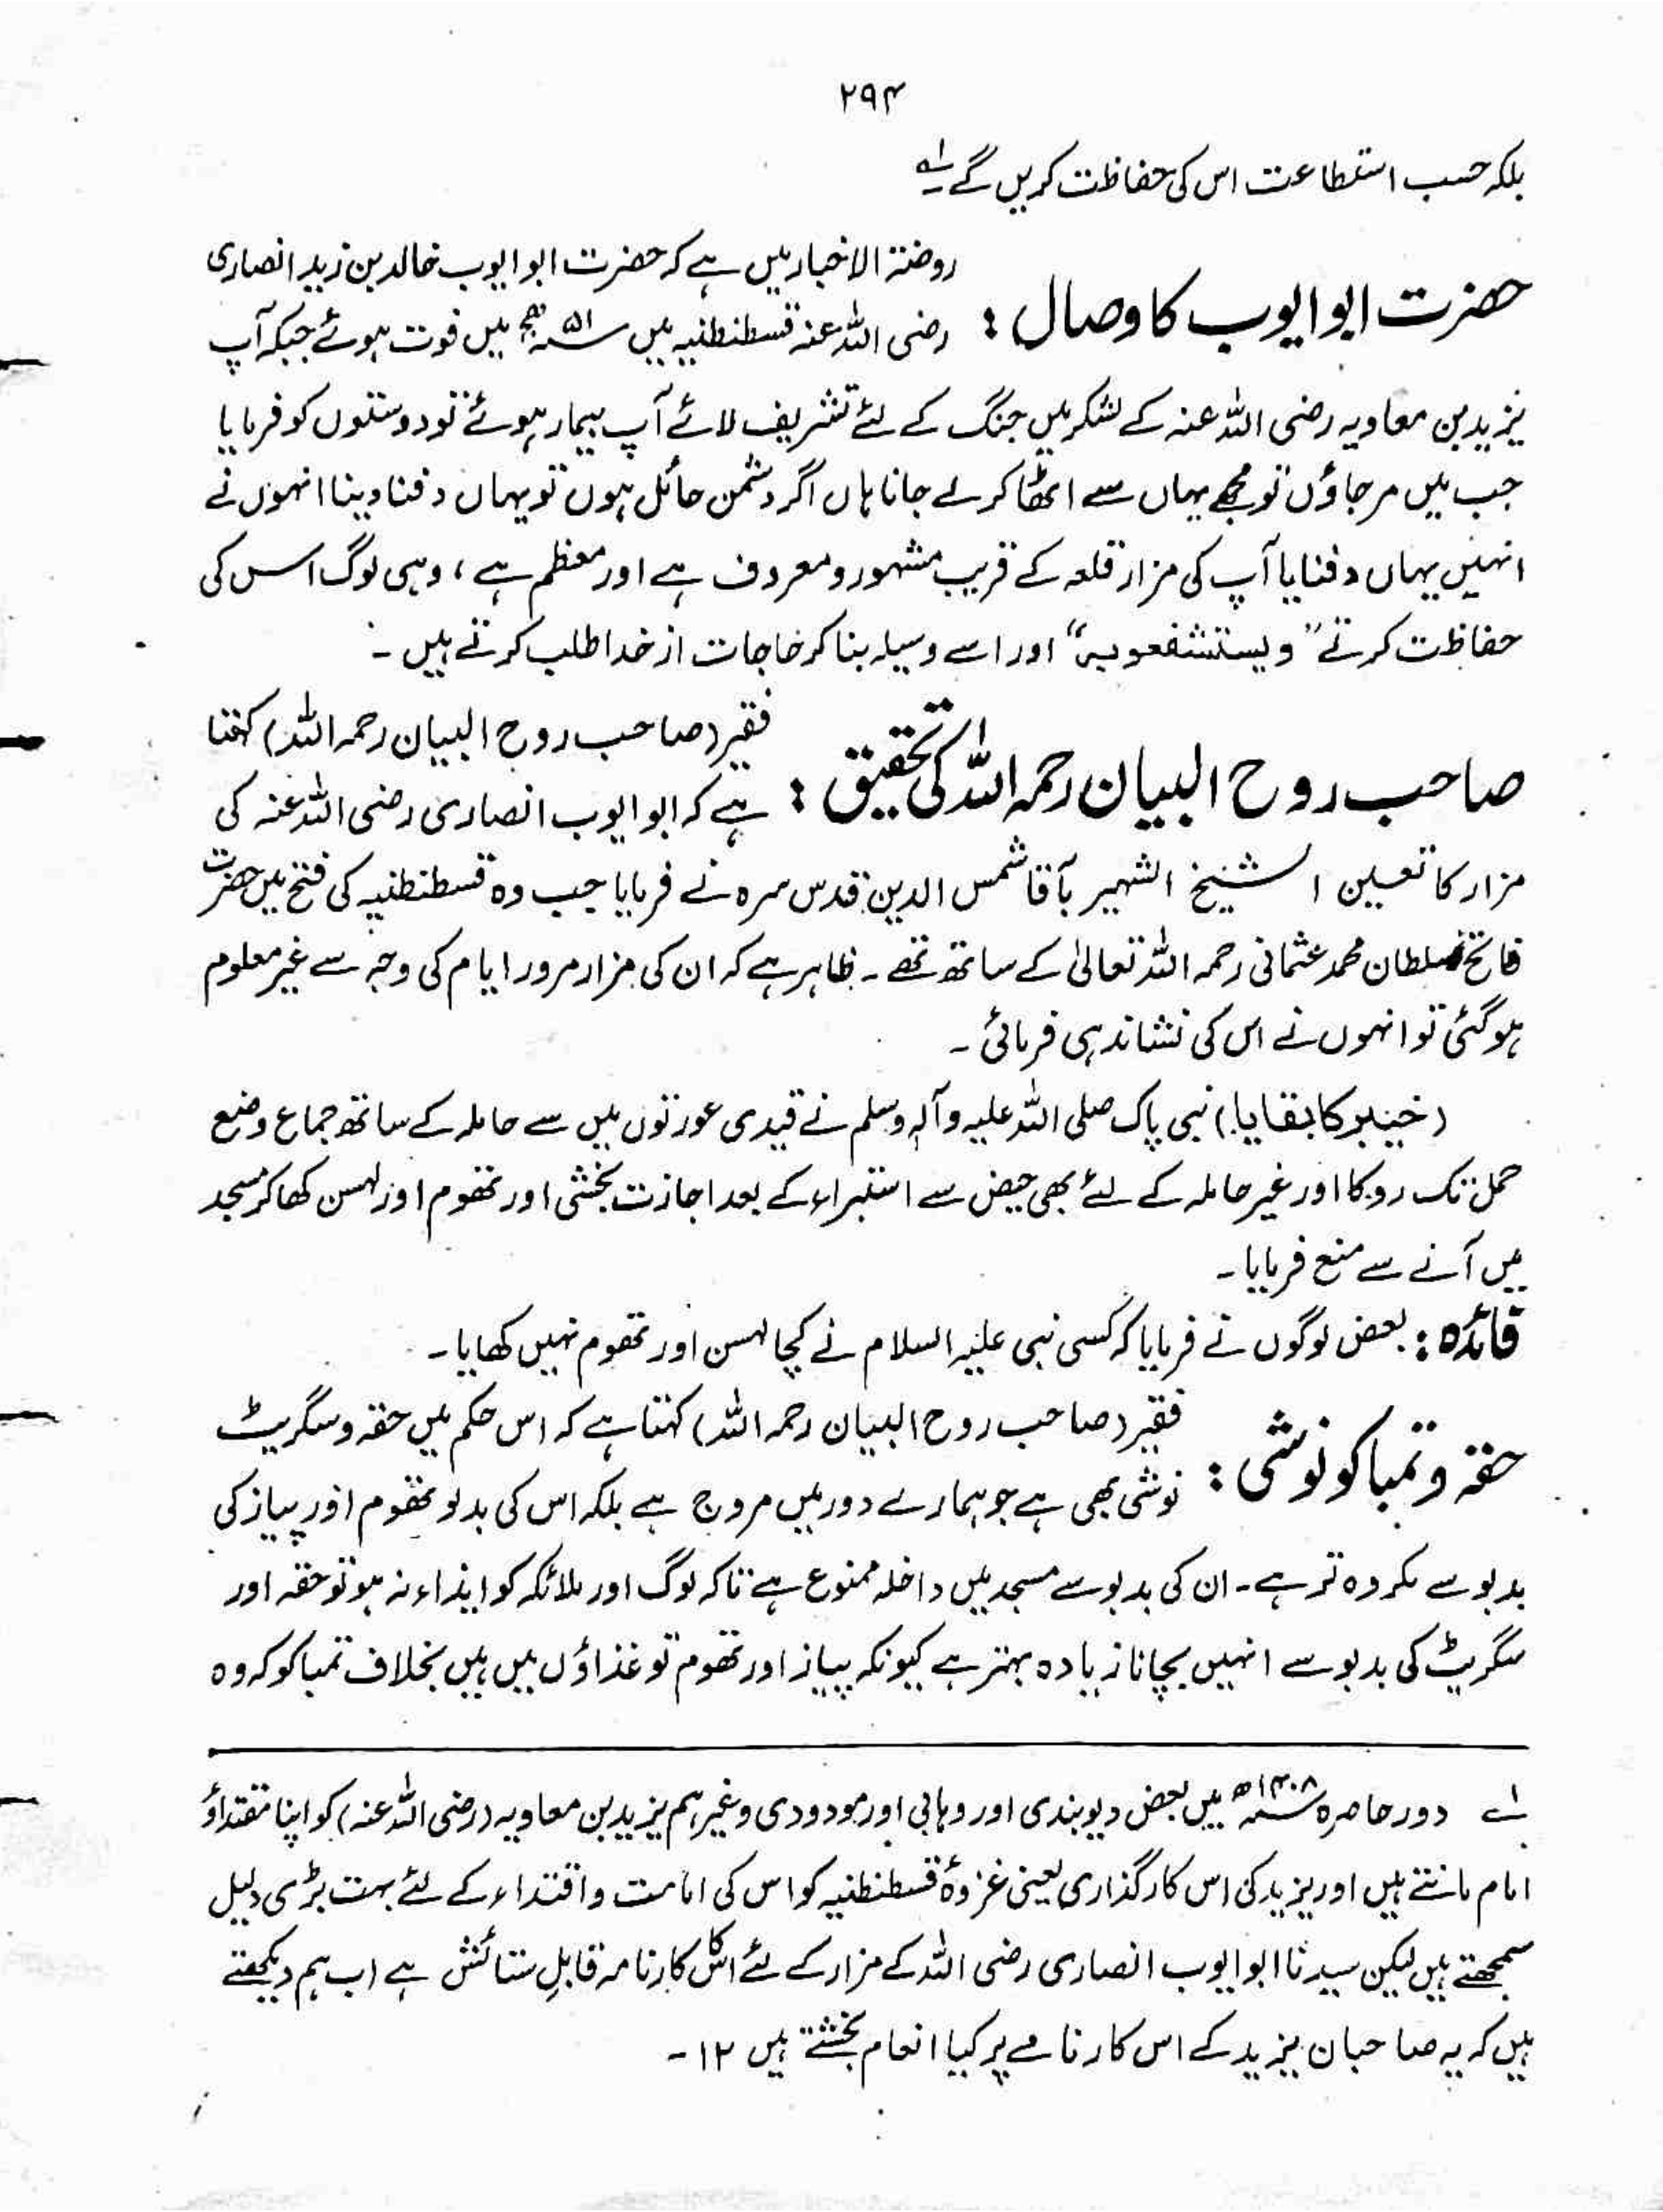 ۲۹۴
بلکہ حسب استطاعت اس کی حفاظت کریں گے لے
حضرت ابوایوب کا وصال :
روضۃ الاخبار میں ہے کہ حضرت ابوایوب خالد بن زید انصاری
رضی اللہ عنہ قسطنطنیہ میں ۵۱ھ میں فوت ہوئے جبکہ آپ
یزید بن معاویہ رضی اللہ عنہ کے لشکر میں جنگ کے لئے تشریف لائے آپ بیمار ہوئے تو دوستوں کو فرمایا
جب میں مر جاؤں تو مجھے یہاں سے اٹھا کر لے جانا ہاں اگر دشمن حائل ہوں تو یہاں دفنا دینا انہوں نے
انہیں یہاں دفنایا آپ کی مزار قلعہ کے قریب مشہور و معروف ہے اور معظم ہے ، وہی لوگ اس کی
حفاظت کرتے ”ویستشفعو بہ“ اور اسے وسیلہ بنا کر حاجات از خدا طلب کرتے ہیں ۔
صاحب روح البیان رحمہ اللہ کی تحقیق :
فقیر (صاحب روح البیان رحمہ اللہ) کہتا
ہے کہ ابوایوب انصاری رضی اللہ عنہ کی
مزار کا تعین الشیخ الشہیر بآقا شمس الدین قدس سرہ نے فرمایا جب وہ قسطنطنیہ کی فتح میں حضرت
فاتح سلطان محمد عثمانی رحمہ اللہ تعالیٰ کے ساتھ تھے ۔ ظاہر ہے کہ ان کی مزار مرور ایام کی وجہ سے غیر معلوم
ہوگئی تو انہوں نے اس کی نشاندہی فرمائی ۔
(خیبر کا بقایا) نبی پاک صلی اللہ علیہ وآلہ وسلم نے قیدی عورتوں میں سے حاملہ کے ساتھ جماع وضع
حمل تک روکا اور غیر حاملہ کے لئے بھی حیض سے استبراء کے بعد اجازت بخشی اور تھوم اور لہسن کھا کر مسجد
میں آنے سے منع فرمایا ۔
فائدہ : بعض لوگوں نے فرمایا کہ کسی نبی علیہ السلام نے کچا لہسن اور تھوم نہیں کھایا ۔
حقہ و تمباکو نوشی :
فقیر (صاحب روح البیان رحمہ اللہ) کہتا ہے کہ اس حکم میں حقہ و سگریٹ
نوشی بھی ہے جو ہمارے دور میں مروج ہے بلکہ اس کی بدبو تھوم اور پیاز کی
بدبو سے مکروہ تر ہے ۔ ان کی بدبو سے مسجد میں داخلہ ممنوع ہے تاکہ لوگ اور ملائکہ کو ایذاء نہ ہو تو حقہ اور
سگریٹ کی بدبو سے انہیں بچانا زیادہ بہتر ہے کیونکہ پیاز اور تھوم تو غذاؤں میں ہیں بخلاف تمباکو کہ وہ
لے دور حاضرہ ۱۴۰۸ھ میں بعض دیوبندی اور وہابی اور مودودی وغیرہم یزید بن معاویہ (رضی اللہ عنہ) کو اپنا مقتداؤ
امام مانتے ہیں اور یزید کی اس کارگذاری یعنی غزوۂ قسطنطنیہ کو اس کی امامت و اقتداء کے لئے بہت بڑی دلیل
سمجھتے ہیں لیکن سیدنا ابوایوب انصاری رضی اللہ کے مزار کے لئے اس کا کارنامہ قابلِ ستائش ہے اب ہم دیکھتے
ہیں کہ یہ صاحبان یزید کے اس کارنامے پر کیا انعام بخشتے ہیں ۱۲ ۔